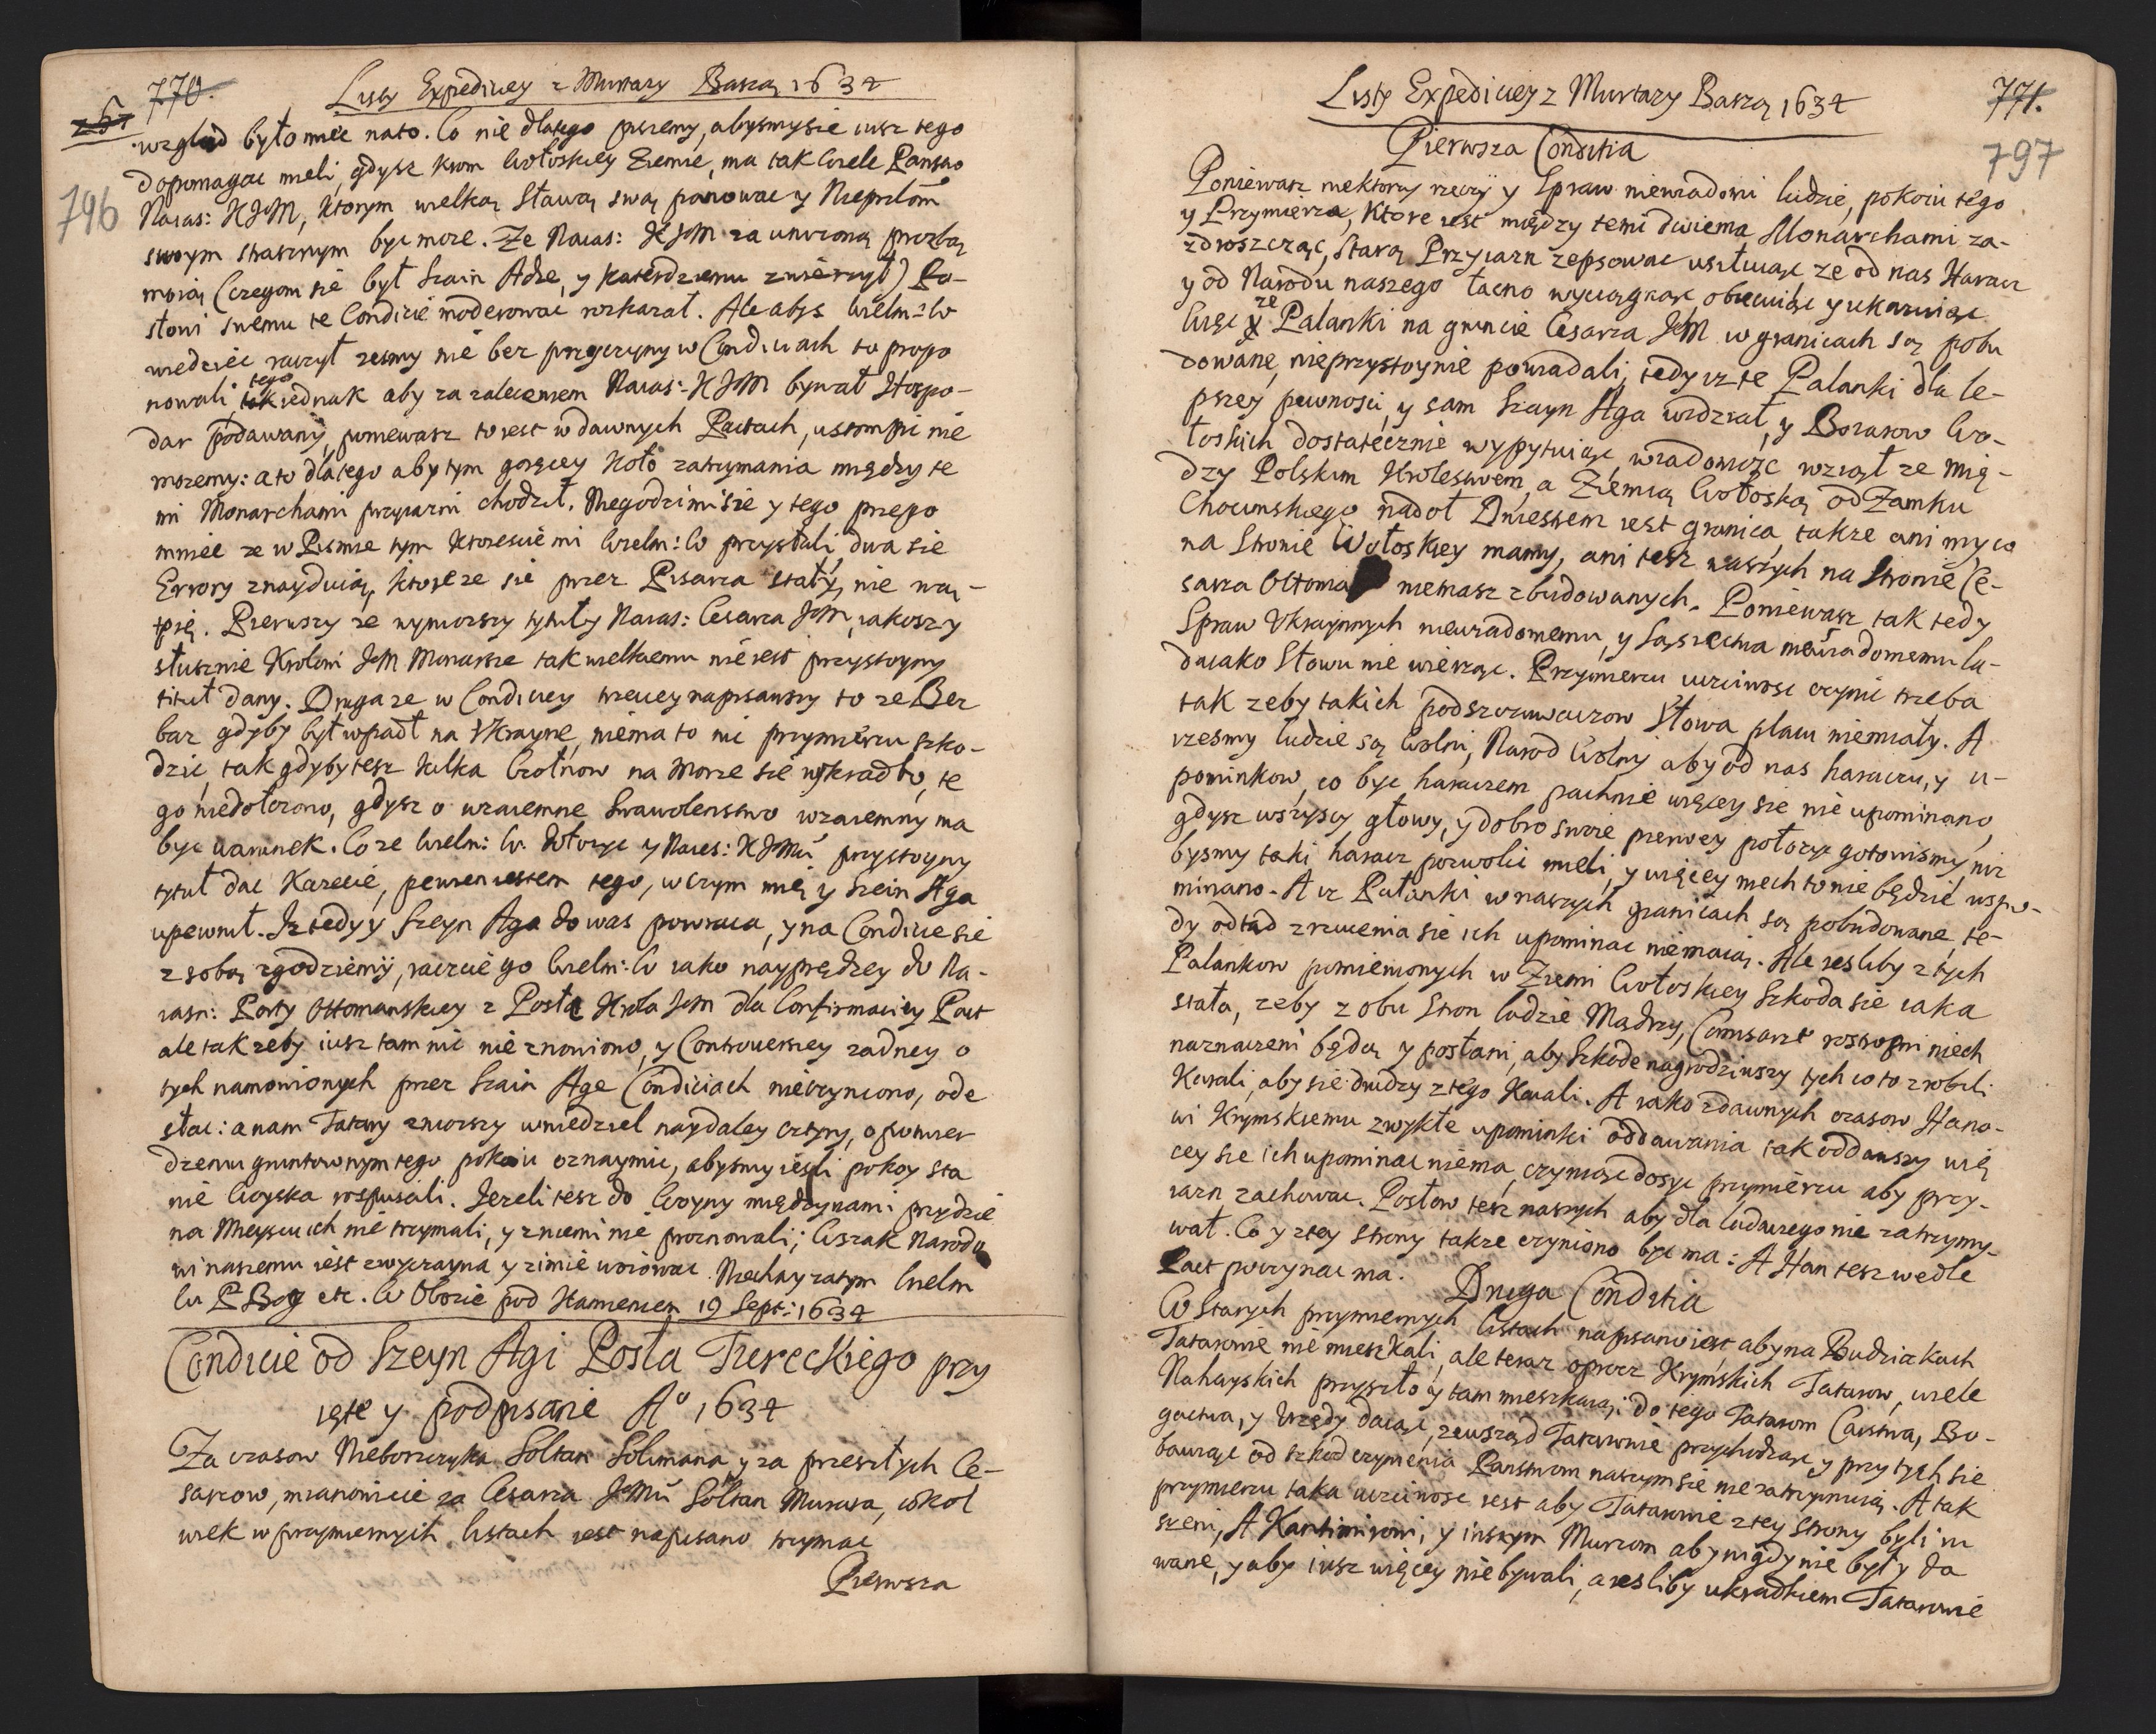 770.
Listy Expediciey z Murtazy Baszą 1634
796
wzgląd było mieć na to. Co nie dlatego piszemy, abysmy sie iusz tego
dopomagac mieli, gdysz krom Wołoskiey Ziemie, ma tak wiele Panstw
Naias: K JM, ktorym wielką Sławą swą panowac y Nieprzłom
swoym strasznym byc moze. Ze Naias: K JM za unizoną prozbą
moią (czegom sie był Szain Adze, y kateldziemu zwierzył) Po-
słowi swemu te Condicie moderowac roskazał. Ale abys Wielm: W
wiedziec raczył zesmy nie bez przyczyny w Condiciach to propo
nowali, tego iednak aby za zaleceniem Naias: K JM bywał Hospo-
dar podawany, poniewasz to iest w dawnych Pactach, ustompic nie
mozemy: a to dlatego aby tym goręcey koło zatrzymania między te
mi Monarchami przyiazni chodził. Niegodzi mi sie y tego przepo
mniec ze w Pismie tym ktoresciemi Wielm: W przysłali, dwa sie
Errory znayduią, ktore ze sie przez Pisarza stały, nie wą-
tpię. Pierwszy ze wymowszy tytuły Naias: Cesarza JM, iakoszy
słusznie Krolowi JM Monarsze tak wielkiemu nie iest przystoyny
tituł dany. Druga ze w Condiciey trzeciey napisawszy to ze Bez
baz gdyby był wpadł na Ukrayne, niema to nic przymierzu szko-
dzic, tak gdyby tesz kilka Czołnow na Morze sie wykradło, te
go niedołozono, gdysz o wzaiemne Swawolenstwo wzaiemny ma
byc warunek. Co ze Wielm: W. dołozyc y Naias: K JMci przystoyny
tytuł dac kazecie, pewien iestem tego, w czym mię y Szein Aga
upewnił. Iz tedy y Szeyn Aga do was powraca, y na Condicie sie
z sobą zgodziemy, raczcie go Wielm: W iako nayprędzey do Na-
iasn: Porty Ottomanskiey z Posłe Krola JM dla Confirmaciey Pact
ale tak zeby iusz tam nic nie znowiono, y Controuersiey zadney o
tych namowionych przez Szain Age Condiciach nieczyniono, ode
słac: a nam Tatary zniowszy w niedziel naydaley cztyry, o potwier
dzeniu gruntownym tego pokoiu oznaymic, abysmy iesli pokoy sta
nie Woyska rospuscili. Iezeli tesz do Woyny między nami przydzie
na Mieyscu ich nie trzymali, y z niemi nie proznowali; Wszak Narodo
wi naszemu iest zwyczayna y zimie woiowac. Niechay zatym Wielm
W P Bog etc. W Obozie pod Kamieniem 19 Sept: 1634
Condicie od Szeyn Agi Posła Tureckiego przy
ięte y podpisane A° 1634
Za czasow Nieborzczyka Soltan Solimana, y za przeszłych Ce-
sarzow, mianowicie za Cesarza JeMci Soltan Murata, cokol
wiek w przymiernych listach iest napisano trzymac
Pierwsza
Listy Expediciey z Murtazy Baszą 1634
771.
797
Pierwsza Conditia
Poniewasz niektorzy rzeczy y Spraw niewiadomi ludzie, pokoiu tego
y Przymierza, ktore iest między temi dwiema Monarchami za-
zdroszcząc, Starą Przyiazn zepsowac usiłuiąc ze od nas Haracz
y od Narodu naszego łacno wyciągnąc obiecuiąc y ukazuiąc
więc ze Palanki na gruncie Cesarza JM w granicach są pobu
dowane, nieprzystoynie powiadali, tedy iz te Palanki dla le-
pszey pewnosci, y sam Szayn Aga widział, y Boiarow Wo-
łoskich dostatecznie wypytuiąc, wiadomosc wziął ze mię-
dzy Polskim Krolestwem, a Ziemią Wołoską od Zamku
Chocimskiego nadoł Dniestrem iest granica, takze ani my co
na Stronie Wołoskiey mamy, ani tesz waszych na Stronie Ce-
sarza Ottoma niemasz zbudowanych. Poniewasz tak tedy
Spraw Ukrayinnych niewiadomemu, y Sąsiectwa niewiadomemu lu-
daiako Słowu nie wierząc. Przymierzu uczciwosc czynic trzeba
tak zeby takich podszczuwaczow Słowa placu niemiały. A
izesmy ludzie są Wolni, Narod Wolny aby od nas haraczu, y u-
pominkow, co byc haraczem pachnie więcey sie nie upominano,
gdysz wszyscy głowy, y dobro swoie pierwey połozyc gotowismy, niz
bysmy taki haracz pozwolic mieli, y więcey niech to nie będzie wspo-
minano. A iz Palanki w naszych granicach są pobudowane, te-
dy odtąd zrzucenia sie ich upominac niemaią. Ale iesliby z tych
Palankow pomienionych w Ziemi Wołoskiey Szkoda sie iaka
stała, zeby z obu Stron ludzie Mądrzy, Comisarze rostropni niech
naznaczeni będą y posłani, aby Szkode nagrodziwszy tych co to zrobili
karali, aby sie drudzy z tego kaiali. A iako z dawnych czasow Hano-
wi Krymskiemu zwykłe upominki oddawania tak oddawszy wię
cey sie ich upominac niema, czyniąc dosyc przymierzu aby przy-
iazn zachowac. Posłow tesz naszych aby dla ladaczego nie zatrzymy-
wał. Co y z tey strony takze czyniono byc ma: A Han tesz wedle
Pact poczynac ma.
Druga Conditia
W Starych przymiernych listach napisano iest, aby na Budziakach
Tatarowie nie mieszkali, ale teraz oprocz Krymskich Tatarow, wiele
Nahayskich przyszło y tam mieszkaią: do tego Tatarom Carstwa, Bo-
gactwa, y Urzędy daiąc, zewsząd Tatarowie przychodząc y przy tych sie
bawiąc od szkod czynienia Panstwom naszym sie nie zatrzymuią. A tak
przymierzu taka uczciwosc iest aby Tatarowie z tey strony byli zn
szeni, A Kantimirowi, y inszym Murzom aby nigdy nie były da
wane, y aby iusz więcey nie bywali, a iesliby ukradkiem Tatarowie